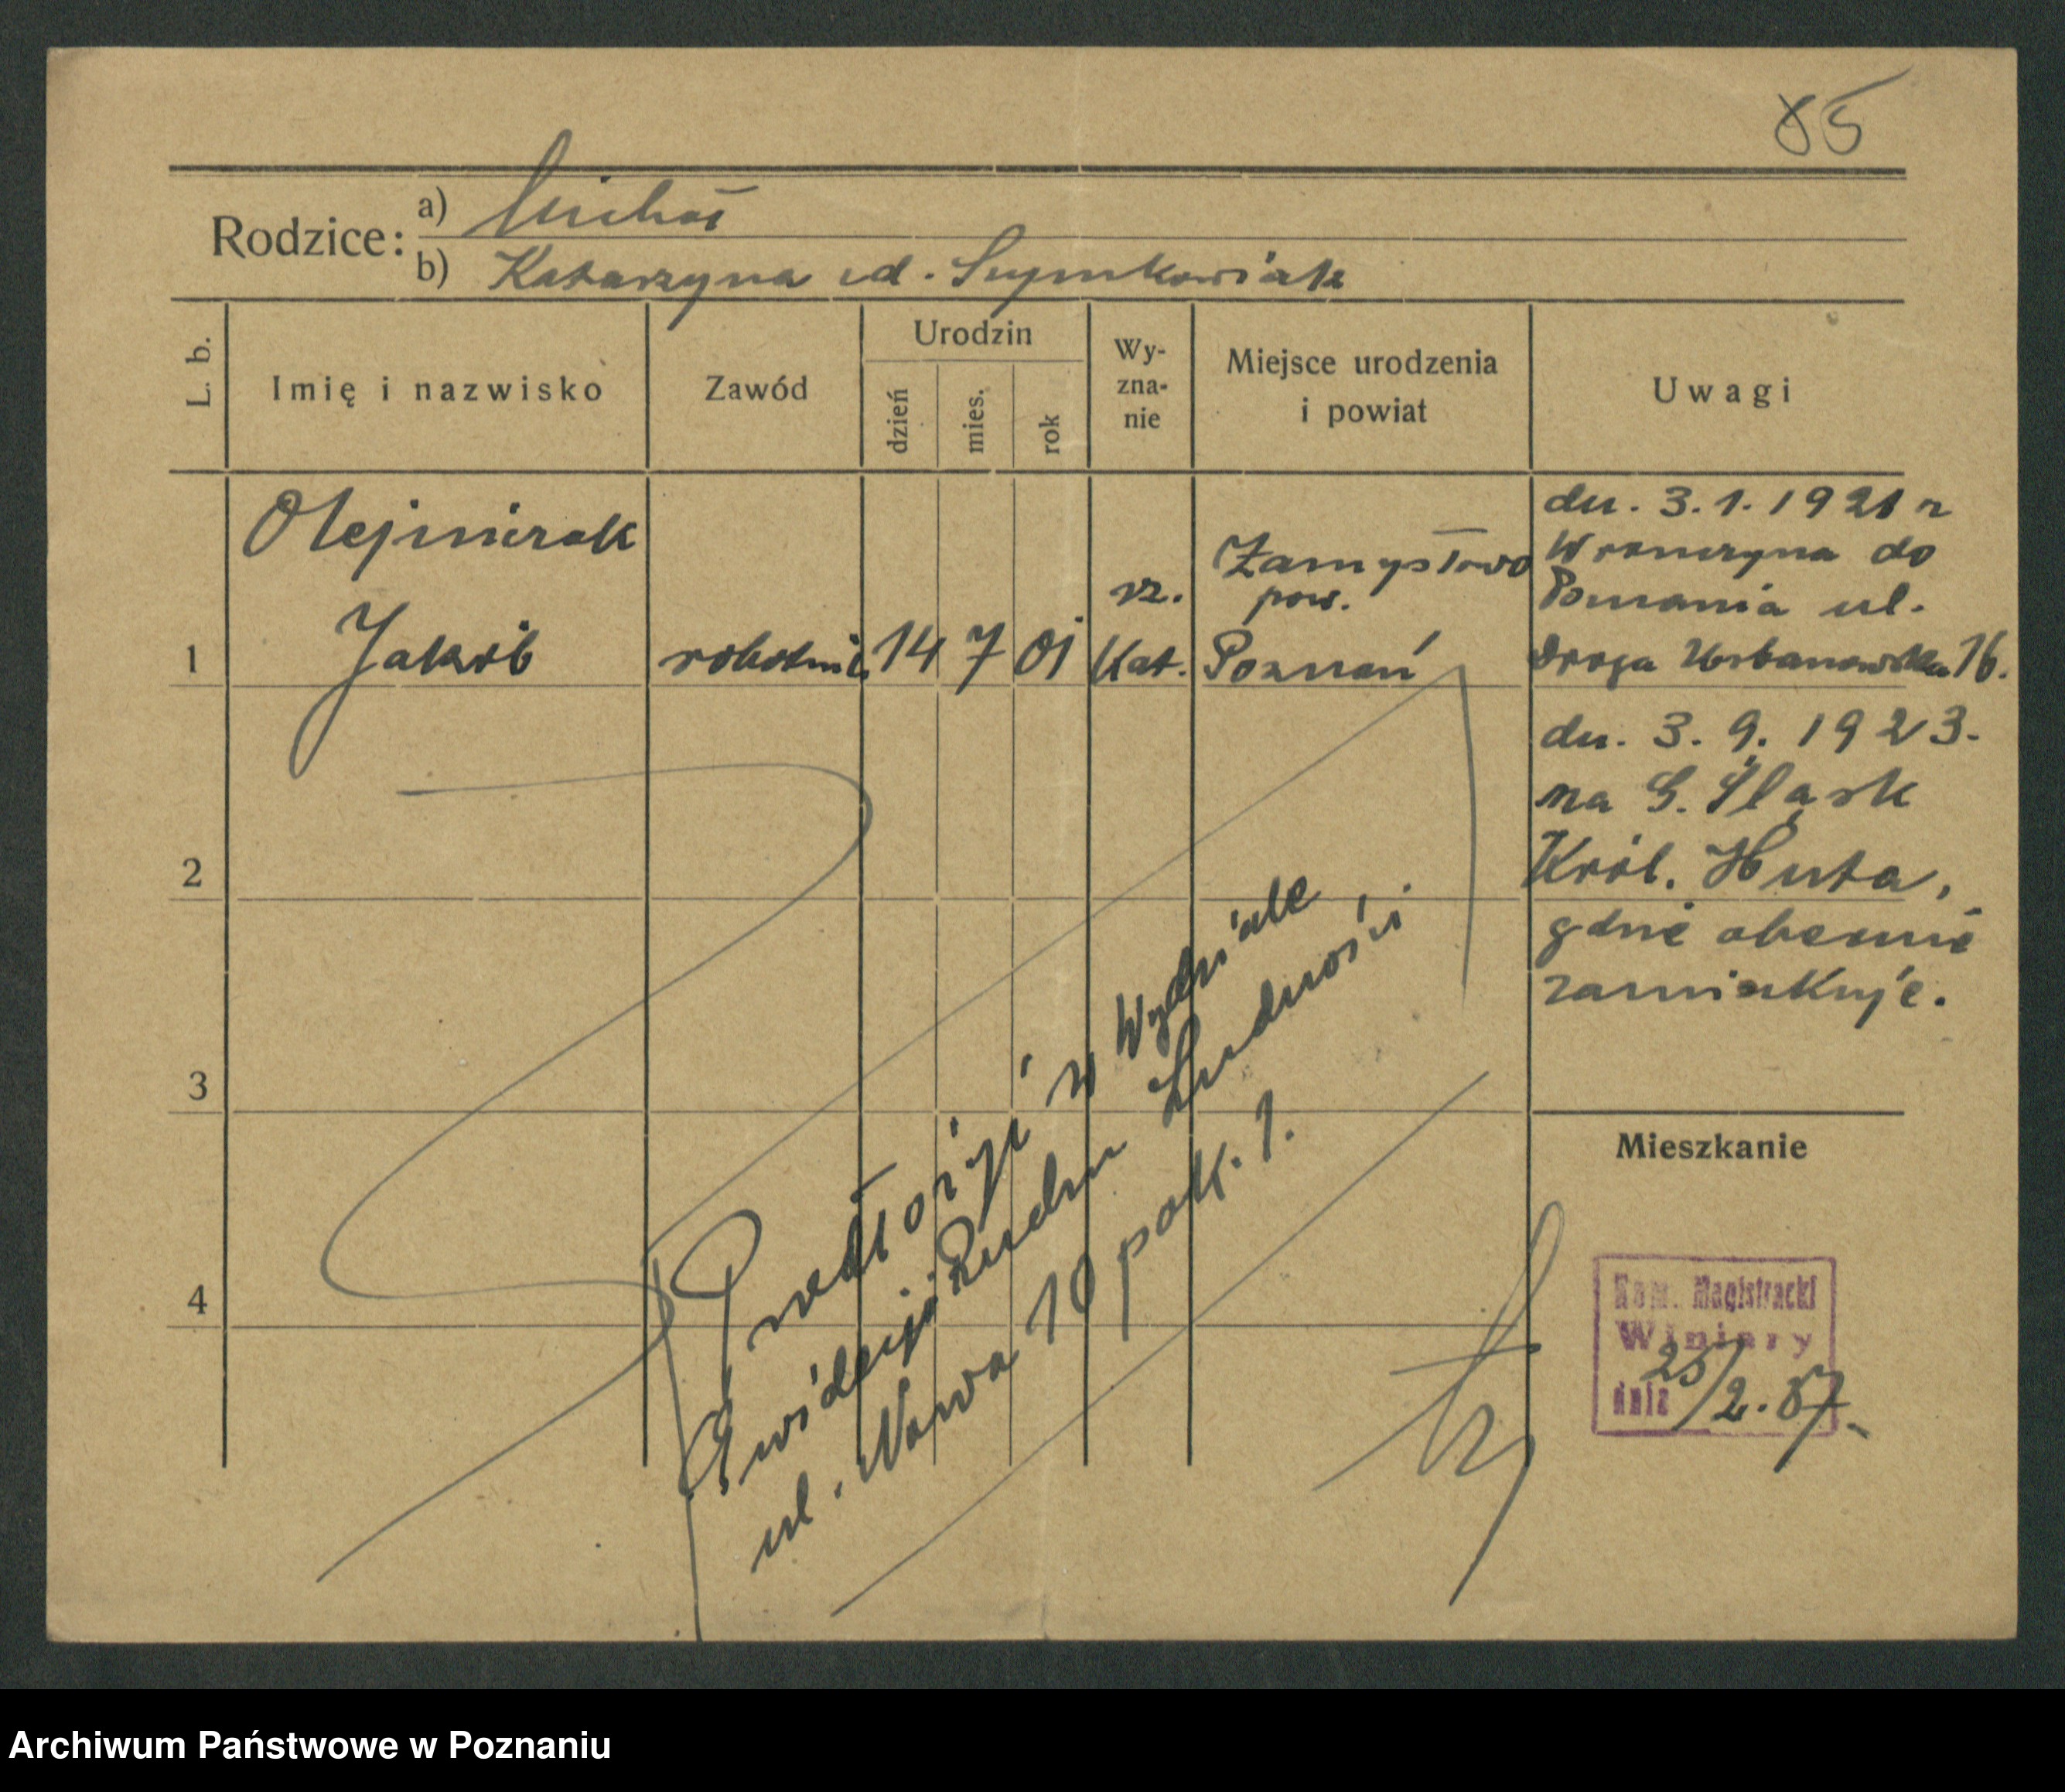 85
Rodzice: a) Michał
b) Katarzyna ud. Szymkowiak
L. b.
Imię i nazwisko
Zawód
Urodzin
dzień
mies.
rok
Wy-
zna-
nie
Miejsce urodzenia
i powiat
Uwagi
Olejniczak
Jakób
1
robotnik
14
7
01
rz.
Kat.
Zamysłowo
pow.
Poznań
dn. 3.1.1921 z
Wronczyna do
Poznania ul.
Droga Urbanowska 16.
dn. 3.9.1923.
na G. Śląsk
Król. Huta,
gdzie obecnie
zamieszkuje.
2
3
4
Przedłożyć w Wydziale
Ewidencji i Ruchu Ludności
ul. Nowa 10 pok. 1.
Mieszkanie
Kom. Magistracki
Winiary
dnia 25/2.37.
Archiwum Państwowe w Poznaniu